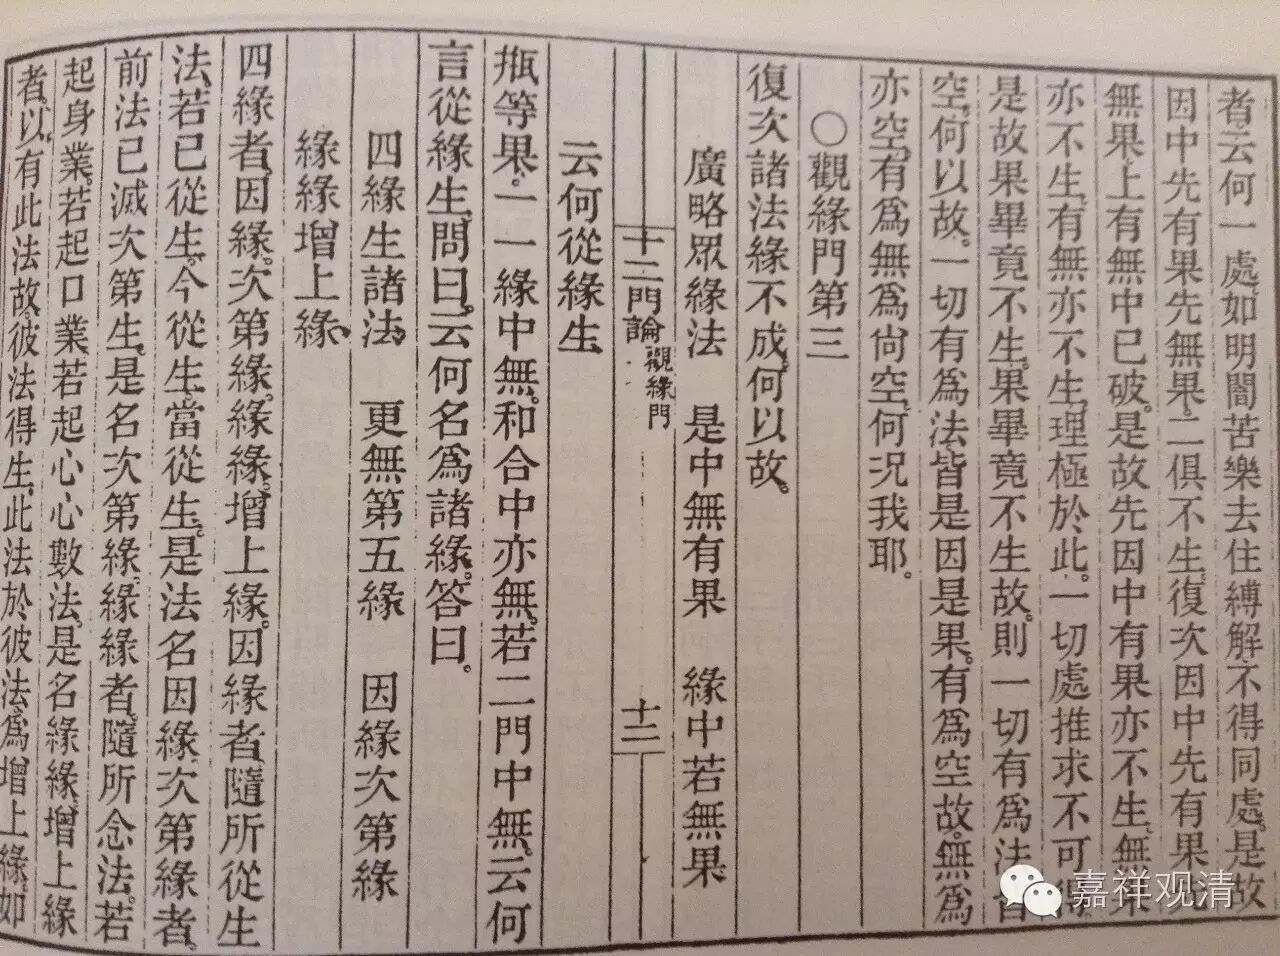 者云何一處。如明闇苦樂去住縛解不得同處。是故
因中先有果先無果。二俱不生。復次因中先有果先
無果上有無中已破。是故先因中有果亦不生。無果
亦不生。有無亦不生。理極於此。一切處推求不可得。
是故果畢竟不生。果畢竟不生故。則一切有為法皆
空。何以故。一切有為法皆是因是果。有為空故。無為
亦空。有為無為尚空。何況我耶。
○觀緣門第三
復次諸法緣不成。何以故。
廣略眾緣法 是中無有果 緣中若無果
十二門論 觀緣門 十二
云何從緣生
瓶等果。一一緣中無。和合中亦無。若二門中無。云何
言從緣生。問曰。云何名為諸緣。答曰。
四緣生諸法 更無第五緣 因緣次第緣
緣緣增上緣
四緣者。因緣。次第緣。緣緣。增上緣。因緣者。隨所從生
法。若已從生。今從生。當從生。是法名因緣。次第緣者。
前法已滅次第生。是名次第緣。緣緣者。隨所念法。若
起身業。若起口業。若起心心數法。是名緣緣。增上緣
者。以有此法故。彼法得生。此法於彼法。為增上緣。如
嘉祥观清